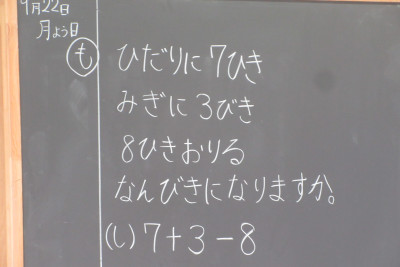 9月22日
月よう日
も
ひだりに7ひき
みぎに3びき
8ひきおりる
なんびきになりますか。
(し)7+3-8